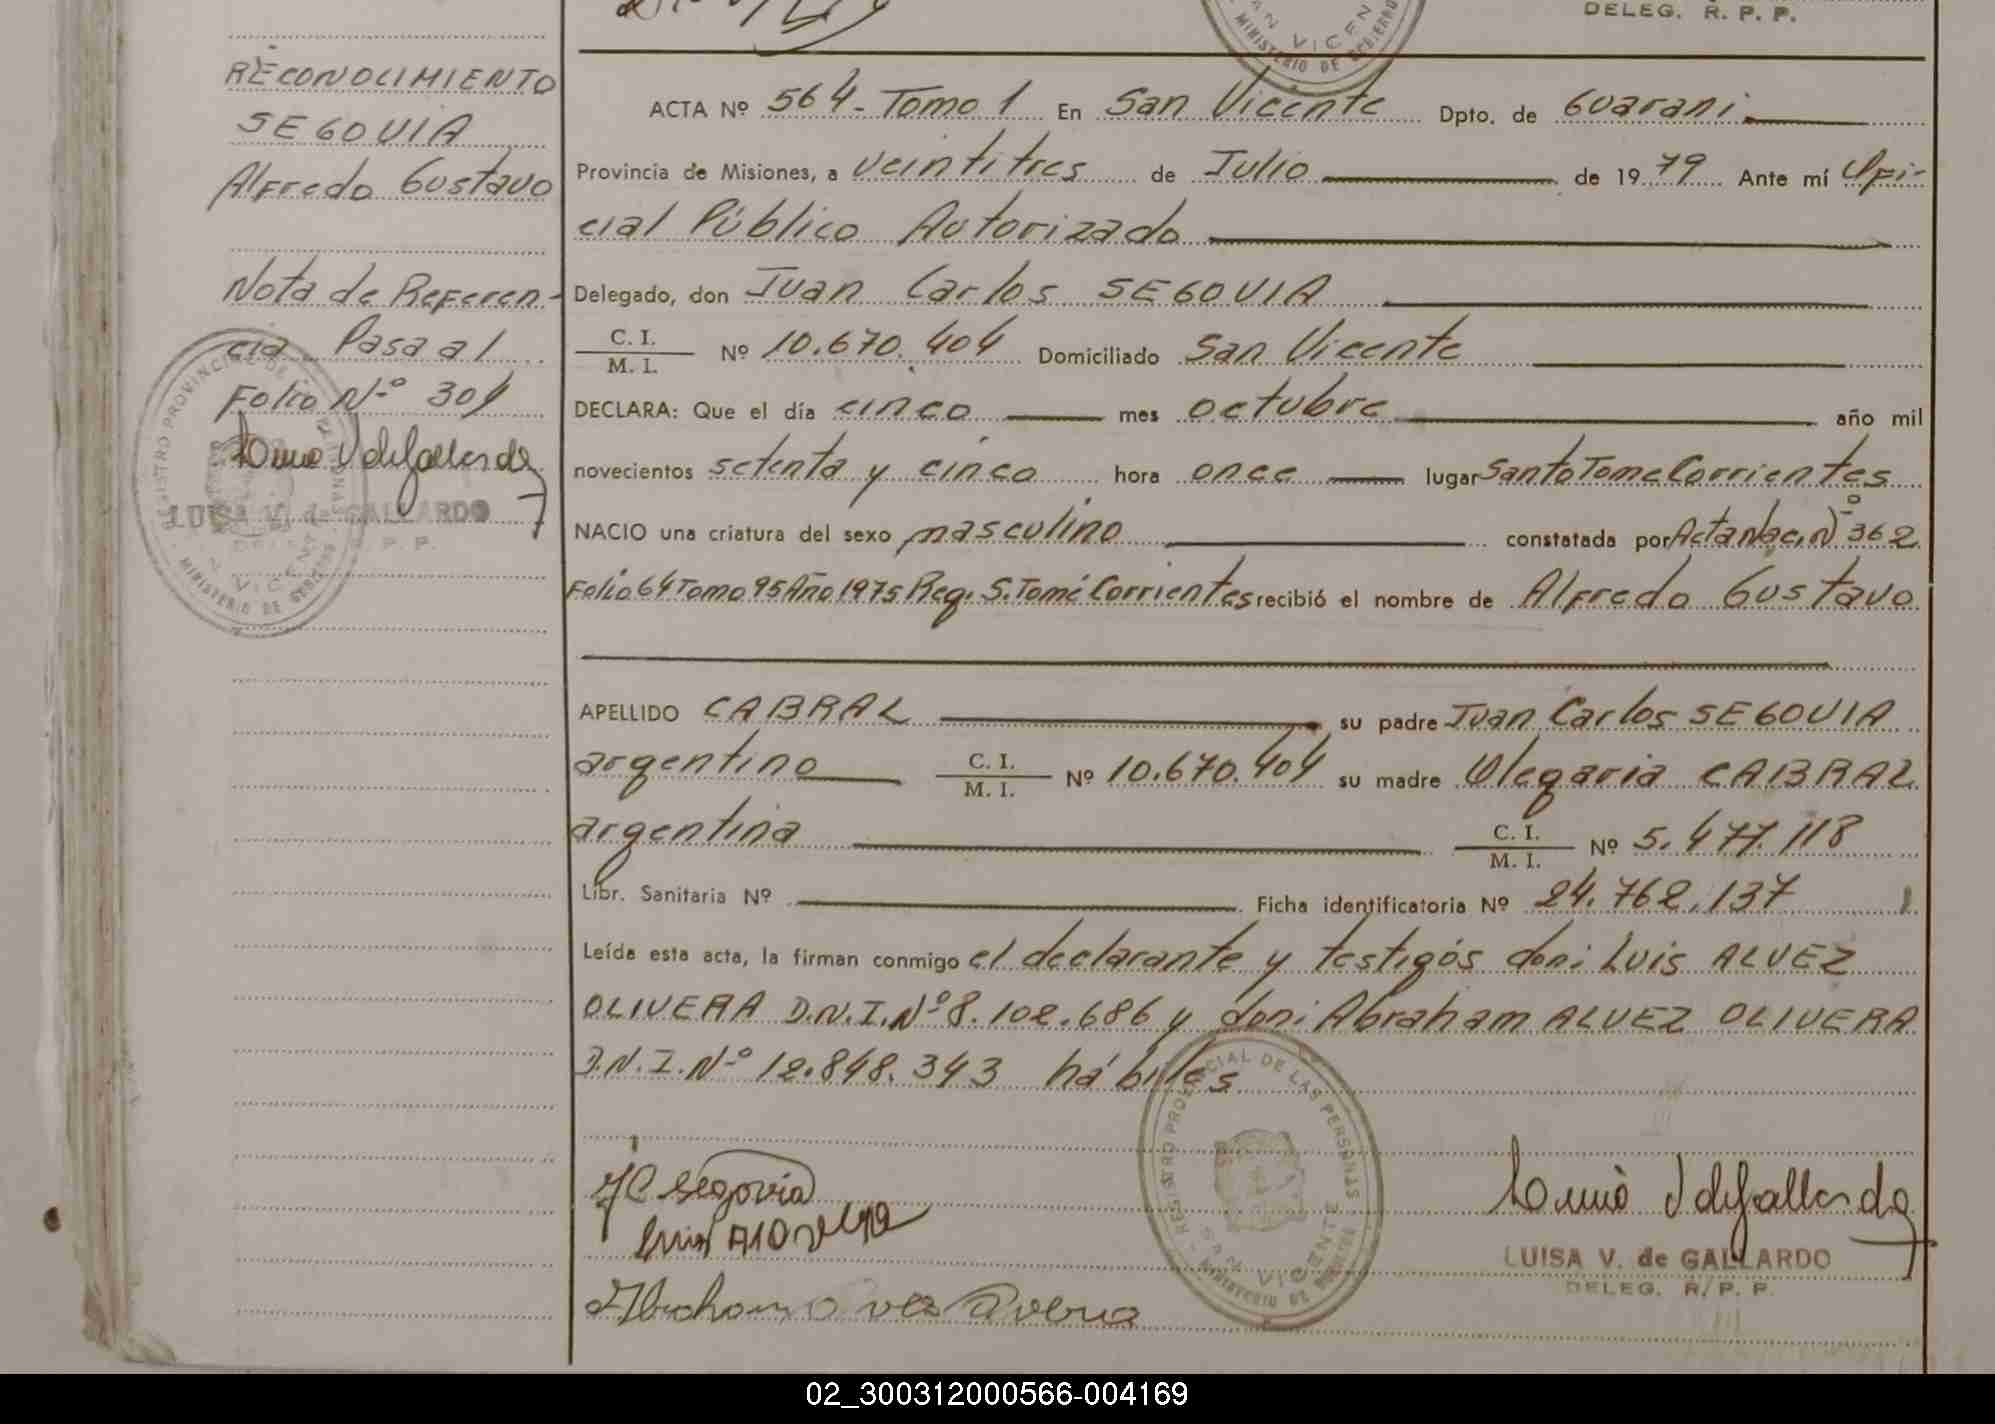 DELEG. R. P. P.
SAN VICENTE
MINISTERIO DE GOBIERNO
RECONOCIMIENTO
SEGOVIA
Alfredo Gustavo
Nota de Referen-
cia Pasa al
Folio Nº 304
LUISA V. de GALLARDO
REGISTRO PROVINCIAL DE LAS PERSONAS
SAN VICENTE
MINISTERIO DE GOBIERNO
ACTA Nº 564 - Tomo 1 En San Vicente Dpto. de Guarani
Provincia de Misiones, a veintitres de Julio de 1979 Ante mí Ofi-
cial Público Autorizado
Delegado, don Juan Carlos SEGOVIA
C. I. / M. I. Nº 10.670.404 Domiciliado San Vicente
DECLARA: Que el día cinco mes octubre año mil
novecientos setenta y cinco hora once lugar Santo Tome Corrientes
NACIO una criatura del sexo masculino constatada por Acta Nac. Nº 362
Folio 64 Tomo 95 Año 1975 Reg. S. Tomé Corrientes recibió el nombre de Alfredo Gustavo
APELLIDO CABRAL su padre Juan Carlos SEGOVIA
argentino C. I. / M. I. Nº 10.670.404 su madre Olegaria CABRAL
argentina C. I. / M. I. Nº 5.477.118
Libr. Sanitaria Nº Ficha identificatoria Nº 24.762.137
Leída esta acta, la firman conmigo el declarante y testigós don: Luis ALVEZ
OLIVERA D.N.I. Nº 8.102.686 y don: Abraham ALVEZ OLIVERA
D.N.I. Nº 12.848.343 hábiles
JC Segovia
REGISTRO PROVINCIAL DE LAS PERSONAS
SAN VICENTE
MINISTERIO DE GOBIERNO
LUISA V. de GALLARDO
DELEG. R. P. P.
02_300312000566-004169